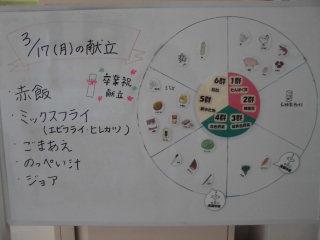 3/17(月)の献立
卒業祝
献立
・赤飯
・ミックスフライ
(エビフライ・ヒレカツ)
・ごまあえ
・のっぺい汁
・ジョア
6群
1群
5群
2群
4群
3群